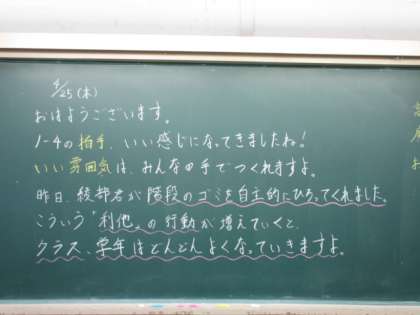 4/25(木)
おはようございます。
1-4の拍手、いい感じになってきましたね!
いい雰囲気は、みんなの手でつくれますよ。
昨日、綾部君が階段のゴミを自主的にひろってくれました。
こういう"利他"の行動が増えていくと、
クラス、学年はどんどんよくなっていきますよ。